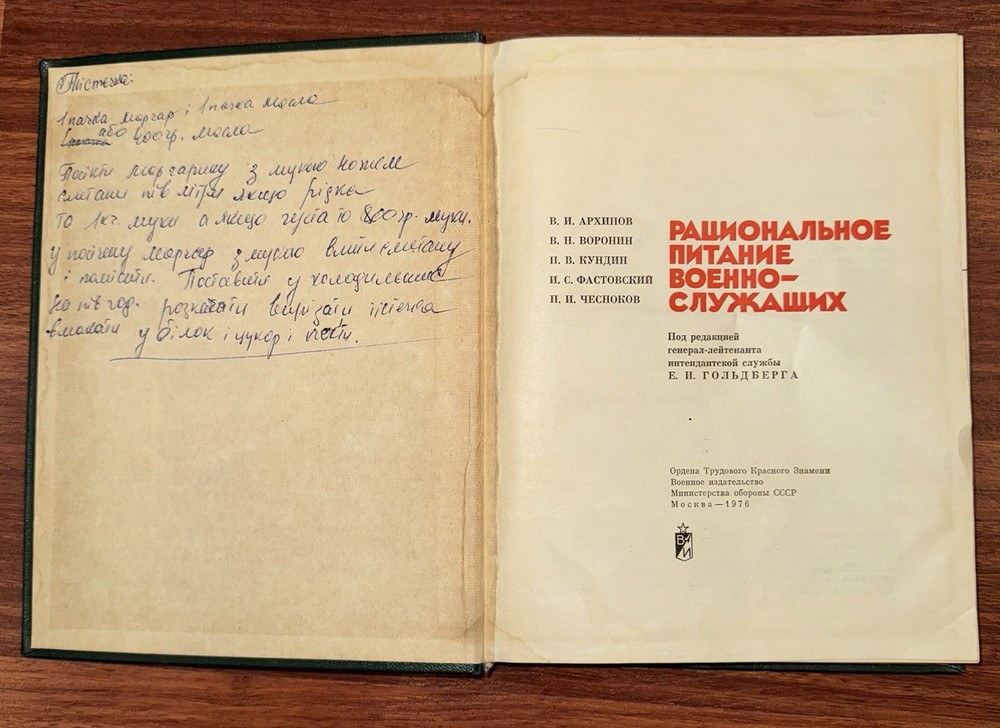 Тістечка:
1 пачка маргар і 1 пачка масла
або 400гр. масла
з мукою ножем
сметани пів літри якщо рідка
то 1кг. муки а якщо густа то 800гр. муки.
у маргар з мукою сметану
і помісити. Поставити у холодильник
на пів год. розкатати вирізати тістечка
вмокати у білок і цукор і пекти.
В. И. АРХИПОВ
В. Н. ВОРОНИН
П. В. КУНДИН
И. С. ФАСТОВСКИЙ
П. И. ЧЕСНОКОВ
РАЦИОНАЛЬНОЕ
ПИТАНИЕ
ВОЕННО-
СЛУЖАЩИХ
Под редакцией
генерал-лейтенанта
интендантской службы
Е. И. ГОЛЬДБЕРГА
Ордена Трудового Красного Знамени
Военное издательство
Министерства обороны СССР
Москва — 1976
В И